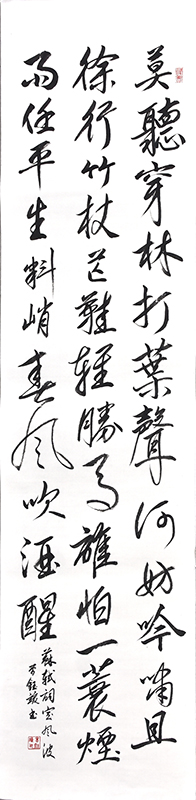 莫聽穿林打葉聲何妨吟嘯且
徐行竹杖芒鞋輕勝馬誰怕一蓑煙
雨任平生料峭春風吹酒醒
蘇軾詞定風波
書